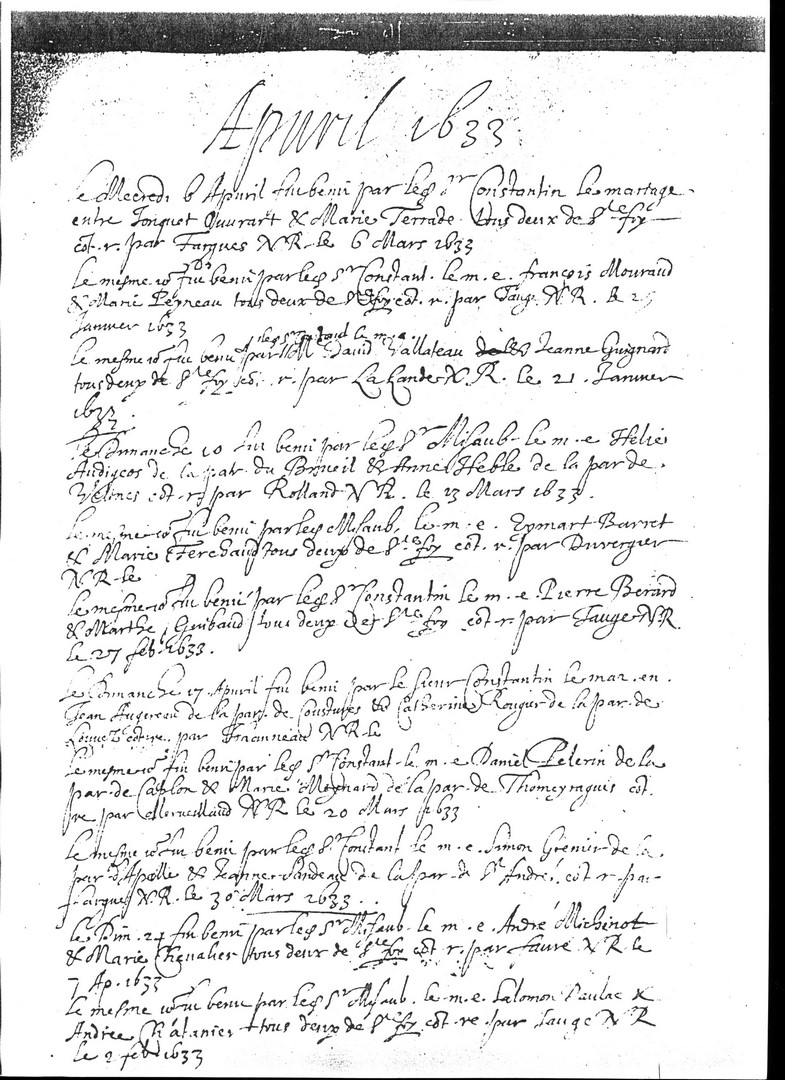 Apuril 1633
le Mecredi 6 Apuril fut beni par led Sr Constantin le mariage
entre Jonquet Ouurart & Marie Terrade tous deux de Ste foy
cot. r. par Fargues N R. le 6 Mars 1633
Le mesme io fut beni par led Sr Constant. le m. e. françois Mouraud
& Marie Peyneau tous deux de Ste foy cot. r. par Tauge N. R. le 25
Januier 1633
le mesme io fut beni par led Sr le m. e. Dauid Vallateau & Jeanne Guignard
tous deux de Ste foy r. par La Lande N. R. le 21 Januier
1633
le Dimanche 10 fut beni par led Sr Misaub. le m. e. Helie
Audigeos de la par. du Brueil & Anne Heble de la par de
Velines cot. r. par Rolland N R. le 13 Mars 1633.
le mesme io fut beni par led Misaub. le m. e. Eymart Barret
& Marie Ferchaud tous deux de Ste foy cot. r. par Duvergier
N R. le
le mesme io fut beni par led Sr Constantin le m. e. Pierre Berard
& Marthe Guibaud tous deux de Ste foy cot. r. par Tauge N R.
le 27 feb. 1633.
le Dimanche 17 Apuril fut beni par le sieur Constantin le mar. en.
Jean Augereau de la par. de Coustures & Catherine Rougier de la par. de
cot re. par N R. le
le mesme io fut beni par led Sr Constant. le m. e Daniel Pelerin de la
par. de Caplon & Marie Moynard de la par. de Thomeyragues cot.
re par Merueillaud N R le 20 Mars 1633
le mesme io fut beni par led Sr Constant le m. e. Simon Grenier de la
par d'Apelle & Jeanne de la par. de St André, cot r. par
fargues N R. le 30 Mars 1633.
le Dim. 24 fut beni par led Sr Misaub. le m. e. André Michinot
& Marie Cheualier tous deux de Ste foy cot. r. par faure N R. le
7 Ap. 1633
le mesme io fut beni par led Sr Misaub. le m. e. Salomon Paulac &
Andree Châtanier tous deux de Ste foy cot. re par Tauge N R
le 2 feb 1633